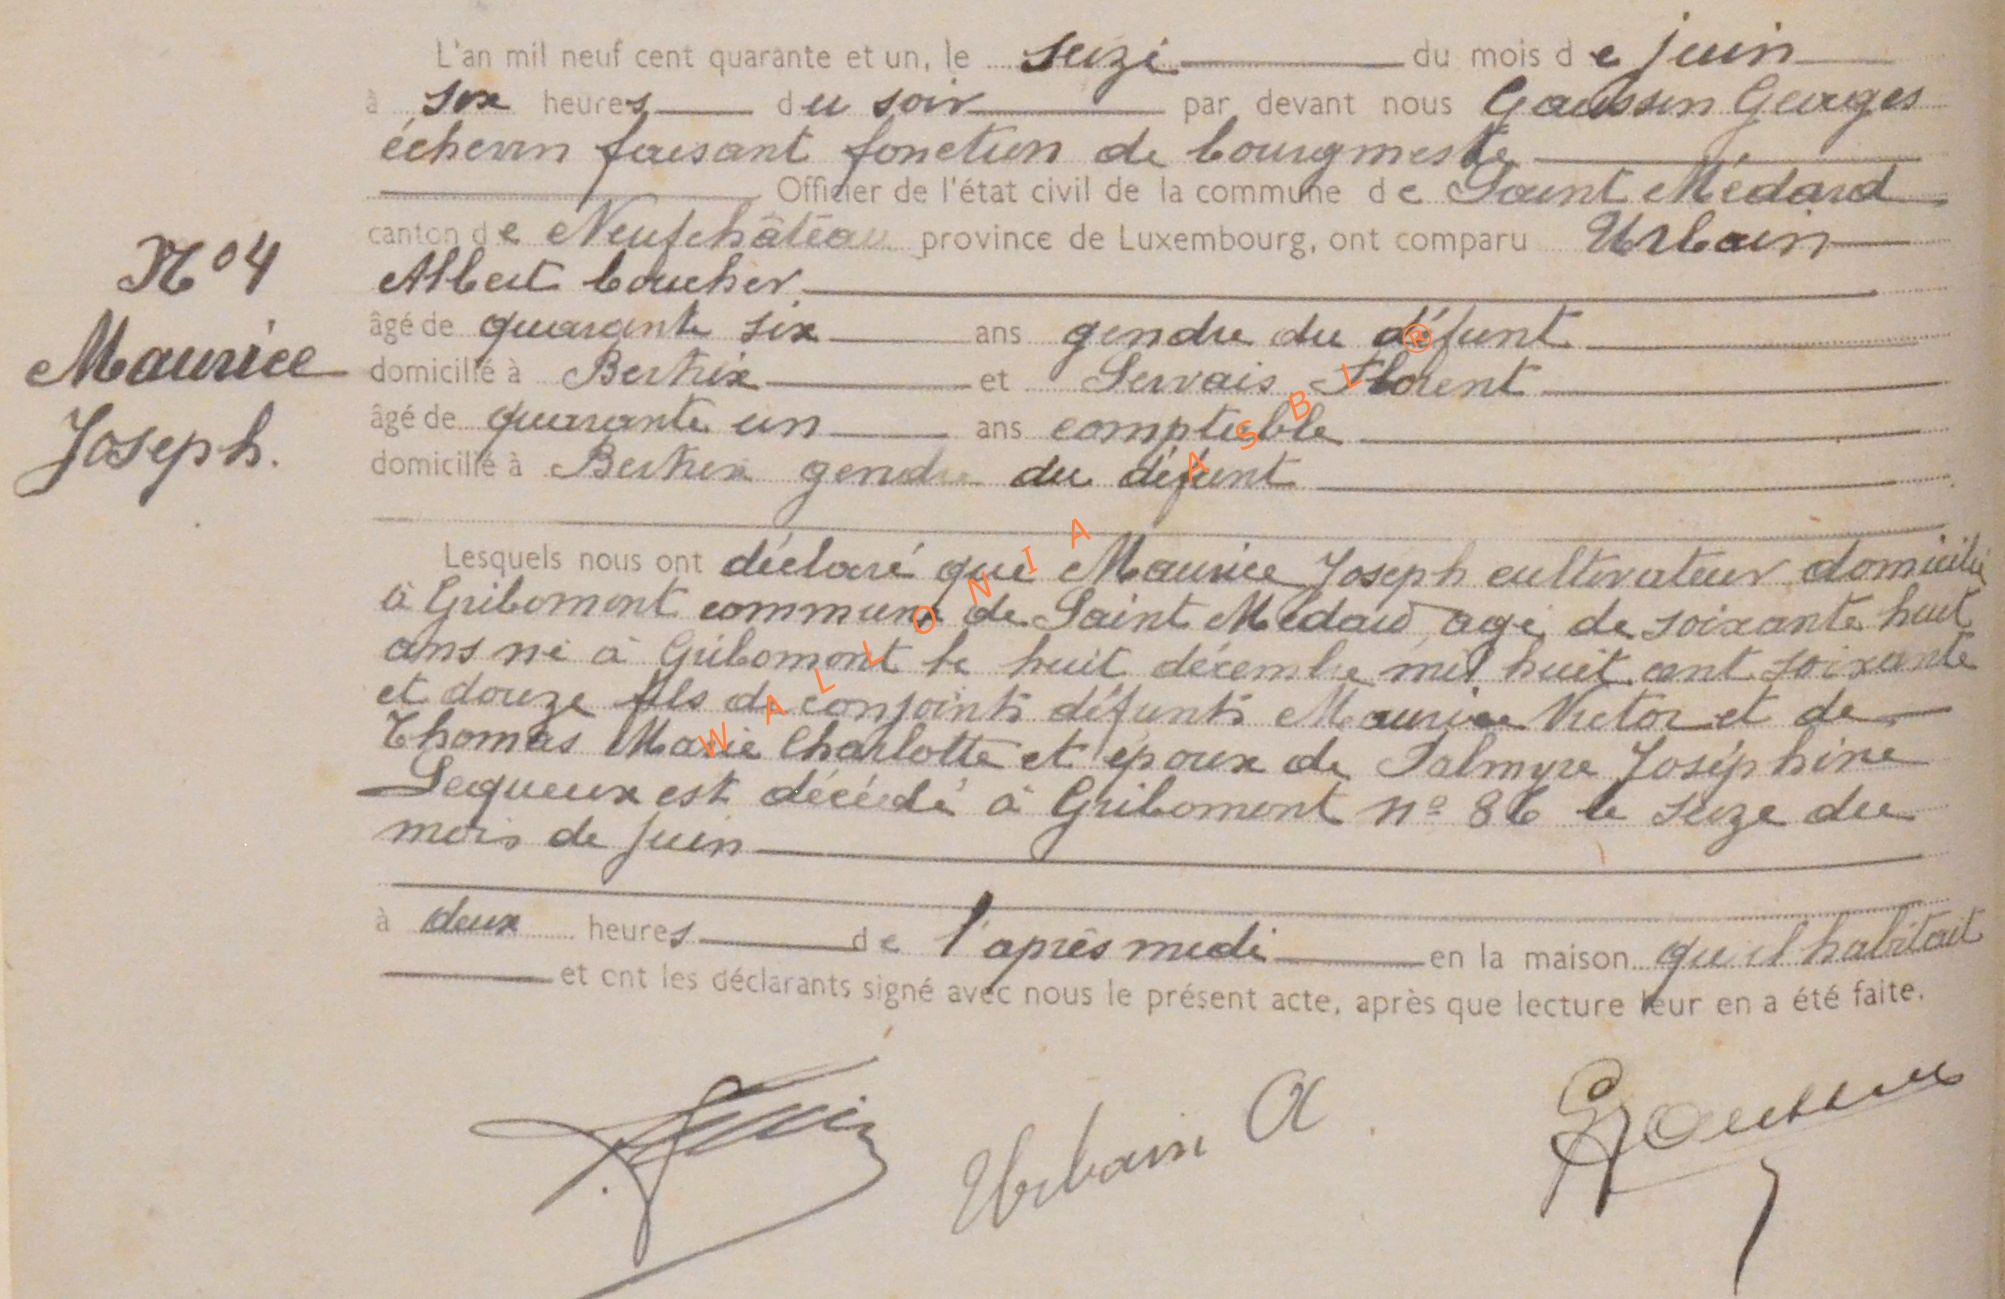 L'an mil neuf cent quarante et un, le seize du mois de juin
à six heures du soir par devant nous Goussin Georges
échevin faisant fonction de bourgmestre
Officier de l'état civil de la commune de Saint Médard
canton de Neufchâteau province de Luxembourg, ont comparu Urbain
Albert boucher
âgé de quarante six ans gendre du défunt
domicilié à Bertrix et Servais Florent
âgé de quarante un ans comptable
domicilié à Bertrix gendre du défunt
N° 4
Maurice
Joseph.
Lesquels nous ont déclaré que Maurice Joseph cultivateur domicilié
à Gribomont commune de Saint Médard agé de soixante huit
ans né à Gribomont le huit décembre mil huit cent soixante
et douze fils de conjoints défunts Maurice Victor et de
Thomas Marie Charlotte et époux de Palmyre Joséphine
Lequeux est décédé à Gribomont n° 86 le seize du
mois de juin
à deux heures de l'après midi en la maison qu'il habitait
et ont les déclarants signé avec nous le présent acte, après que lecture leur en a été faite.
Urbain A
WALLONIA ASBL ®